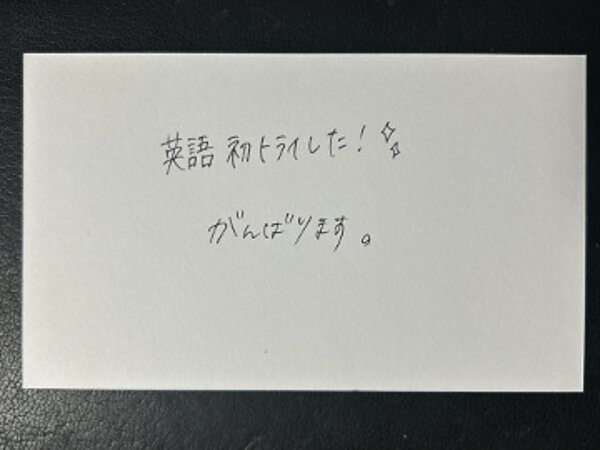 英語 初トライした！✨
がんばります。